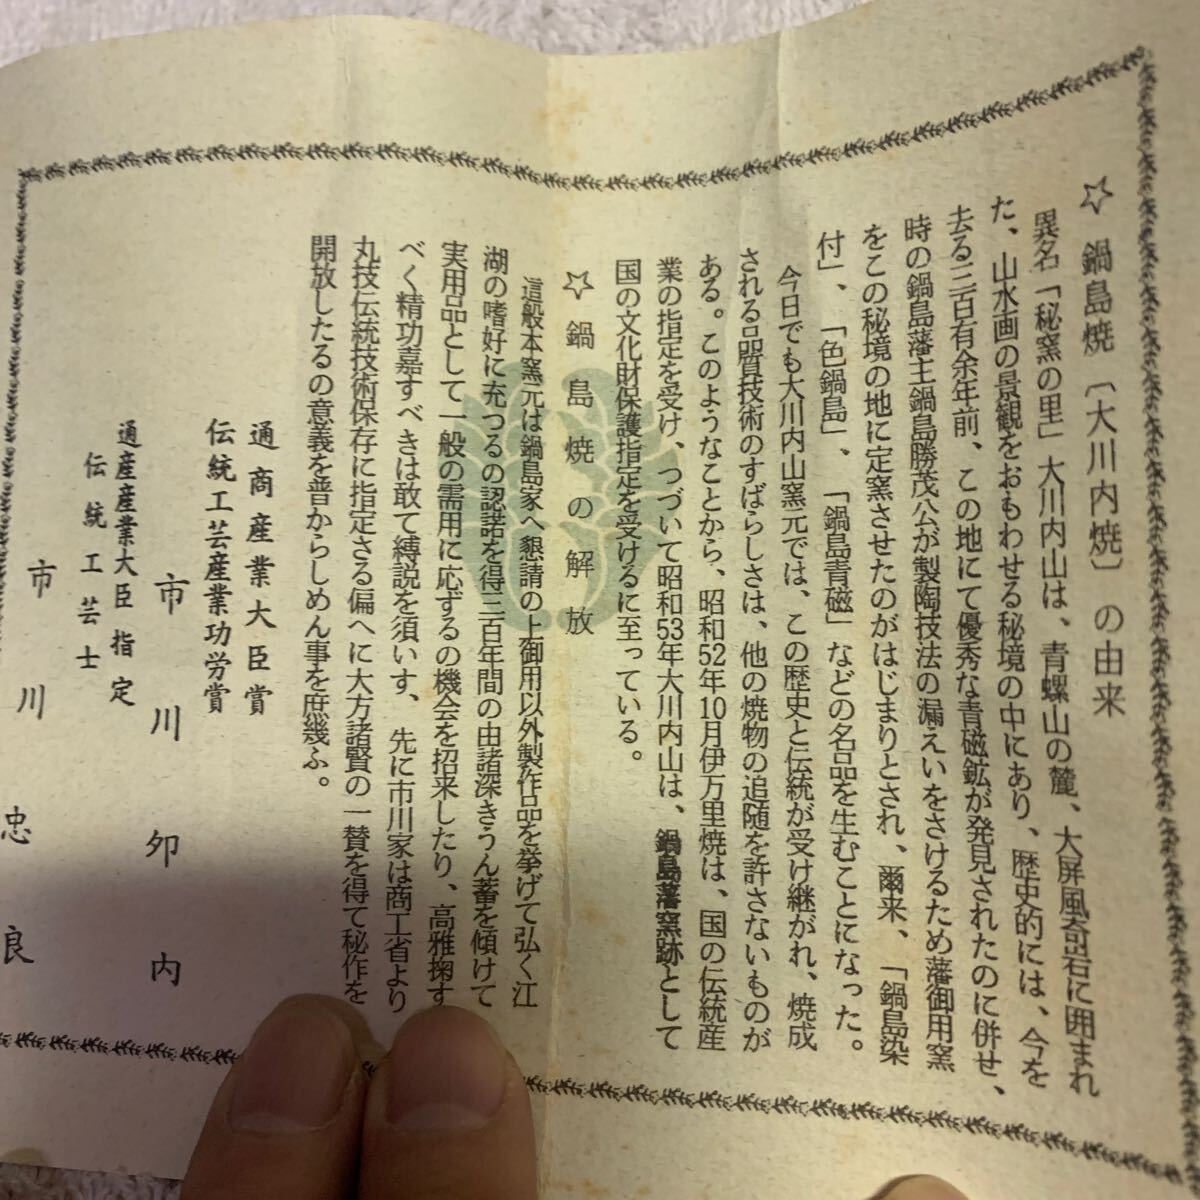 ☆ 鍋島焼〔大川内焼〕の由来
異名「秘窯の里」大川内山は、青螺山の麓、大屏風奇岩に囲まれ
た、山水画の景観をおもわせる秘境の中にあり、歴史的には、今を
去る三百有余年前、この地にて優秀な青磁鉱が発見されたのに併せ、
時の鍋島藩主鍋島勝茂公が製陶技法の漏えいをさけるため藩御用窯
をこの秘境の地に定窯させたのがはじまりとされ、爾来、「鍋島染
付」、「色鍋島」、「鍋島青磁」などの名品を生むことになった。
今日でも大川内山窯元では、この歴史と伝統が受け継がれ、焼成
される品質技術のすばらしさは、他の焼物の追随を許さないものが
ある。このようなことから、昭和52年10月伊万里焼は、国の伝統産
業の指定を受け、つづいて昭和53年大川内山は、鍋島藩窯跡として
国の文化財保護指定を受けるに至っている。
☆ 鍋島焼の解放
這般本窯元は鍋島家へ懇請の上御用以外製作品を挙げて弘く江
湖の嗜好に充つるの認諾を得三百年間の由諸深きうん蓄を傾けて
実用品として一般の需用に応ずるの機会を招来したり、高雅掬す
べく精功嘉すべきは敢て縛説を須いす、先に市川家は商工省より
丸技伝統技術保存に指定さる偏へに大方諸賢の一賛を得て秘作を
開放したるの意義を普からしめん事を庶幾ふ。
通商産業大臣賞
伝統工芸産業功労賞
市川卯内
通産産業大臣指定
伝統工芸士
市川忠良